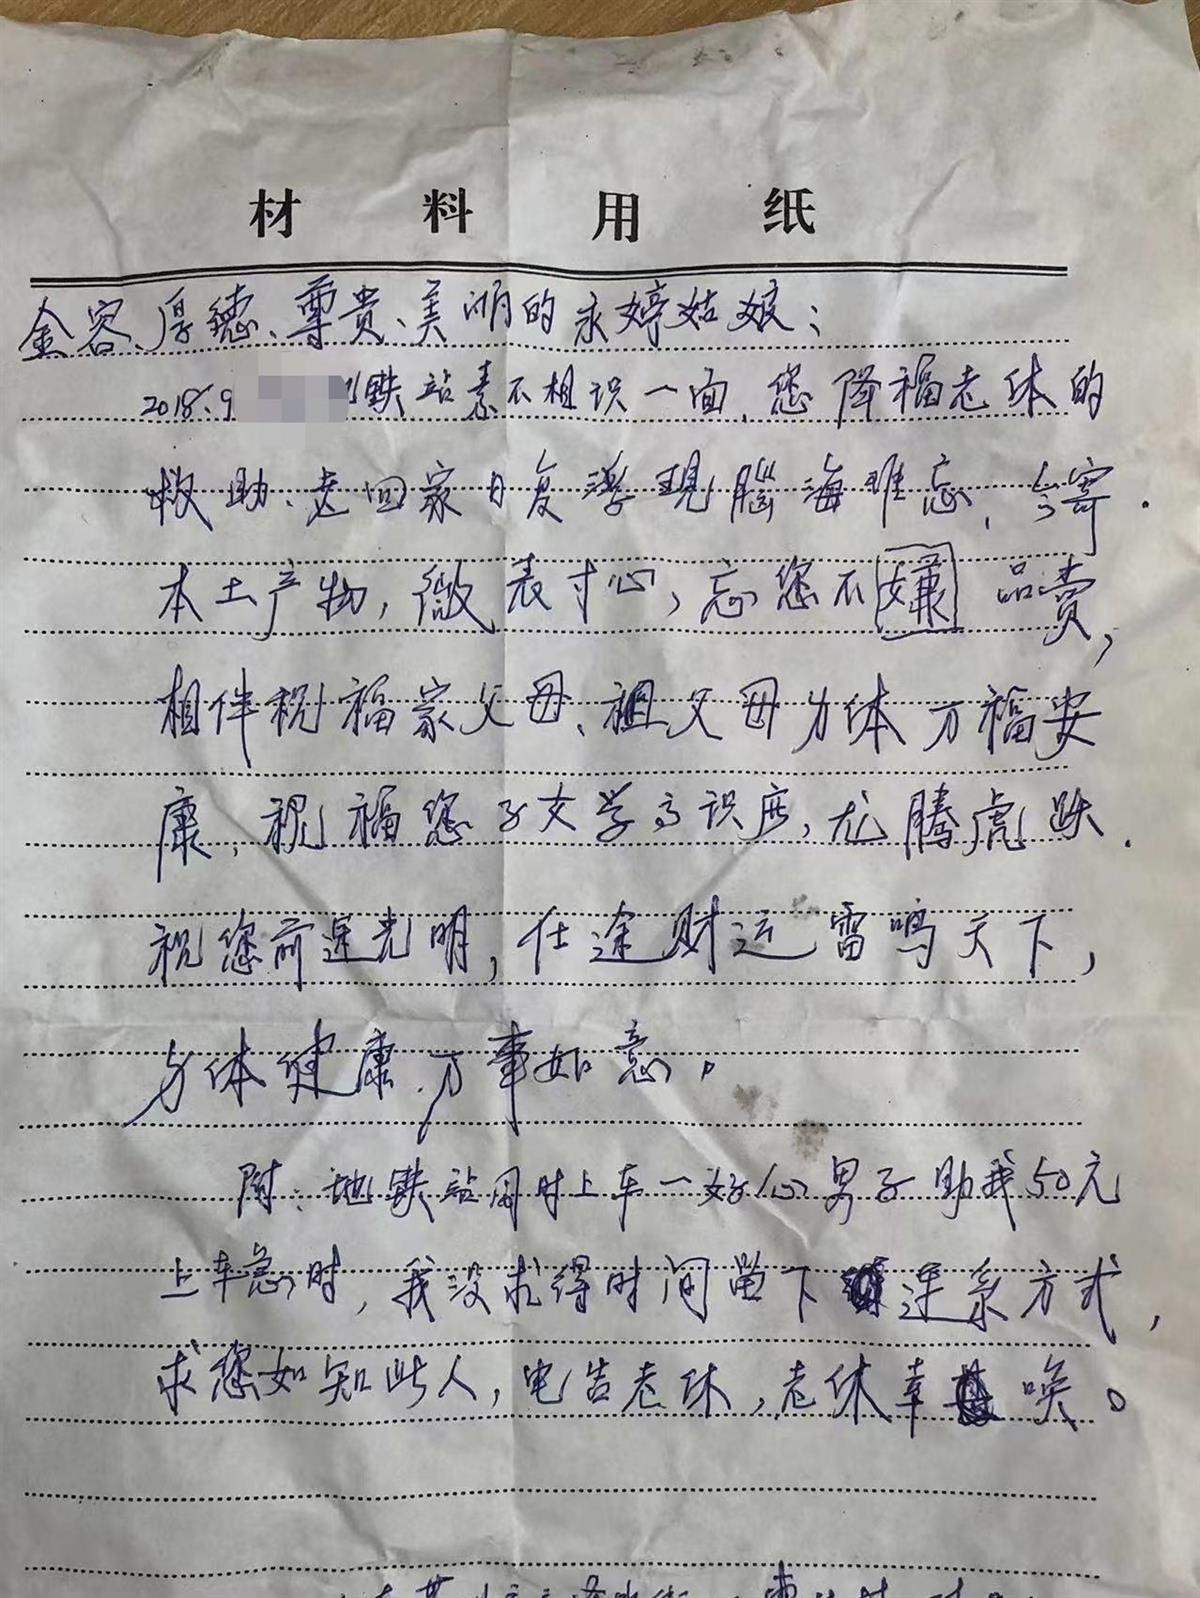 材料用纸
金容、厚德、尊贵、美丽的永婷姑娘：
2018.9 铁站素不相识一面，您降福老休的
救助、老回家日复浮现脑海难忘，今寄
本土产物，微表寸心，忘您不嫌品卖，
相伴祝福家父母、祖父母身体万福安
康，祝福您子女学高识广，龙腾虎跃．
祝您前途光明，仕途财运雷鸣天下，
身体健康．万事如意。
附：地铁站同时上车一好心男子助我50元
上车急时，我没求得时间留下连系方式，
求您如知此人，电告老休，老休幸唤。